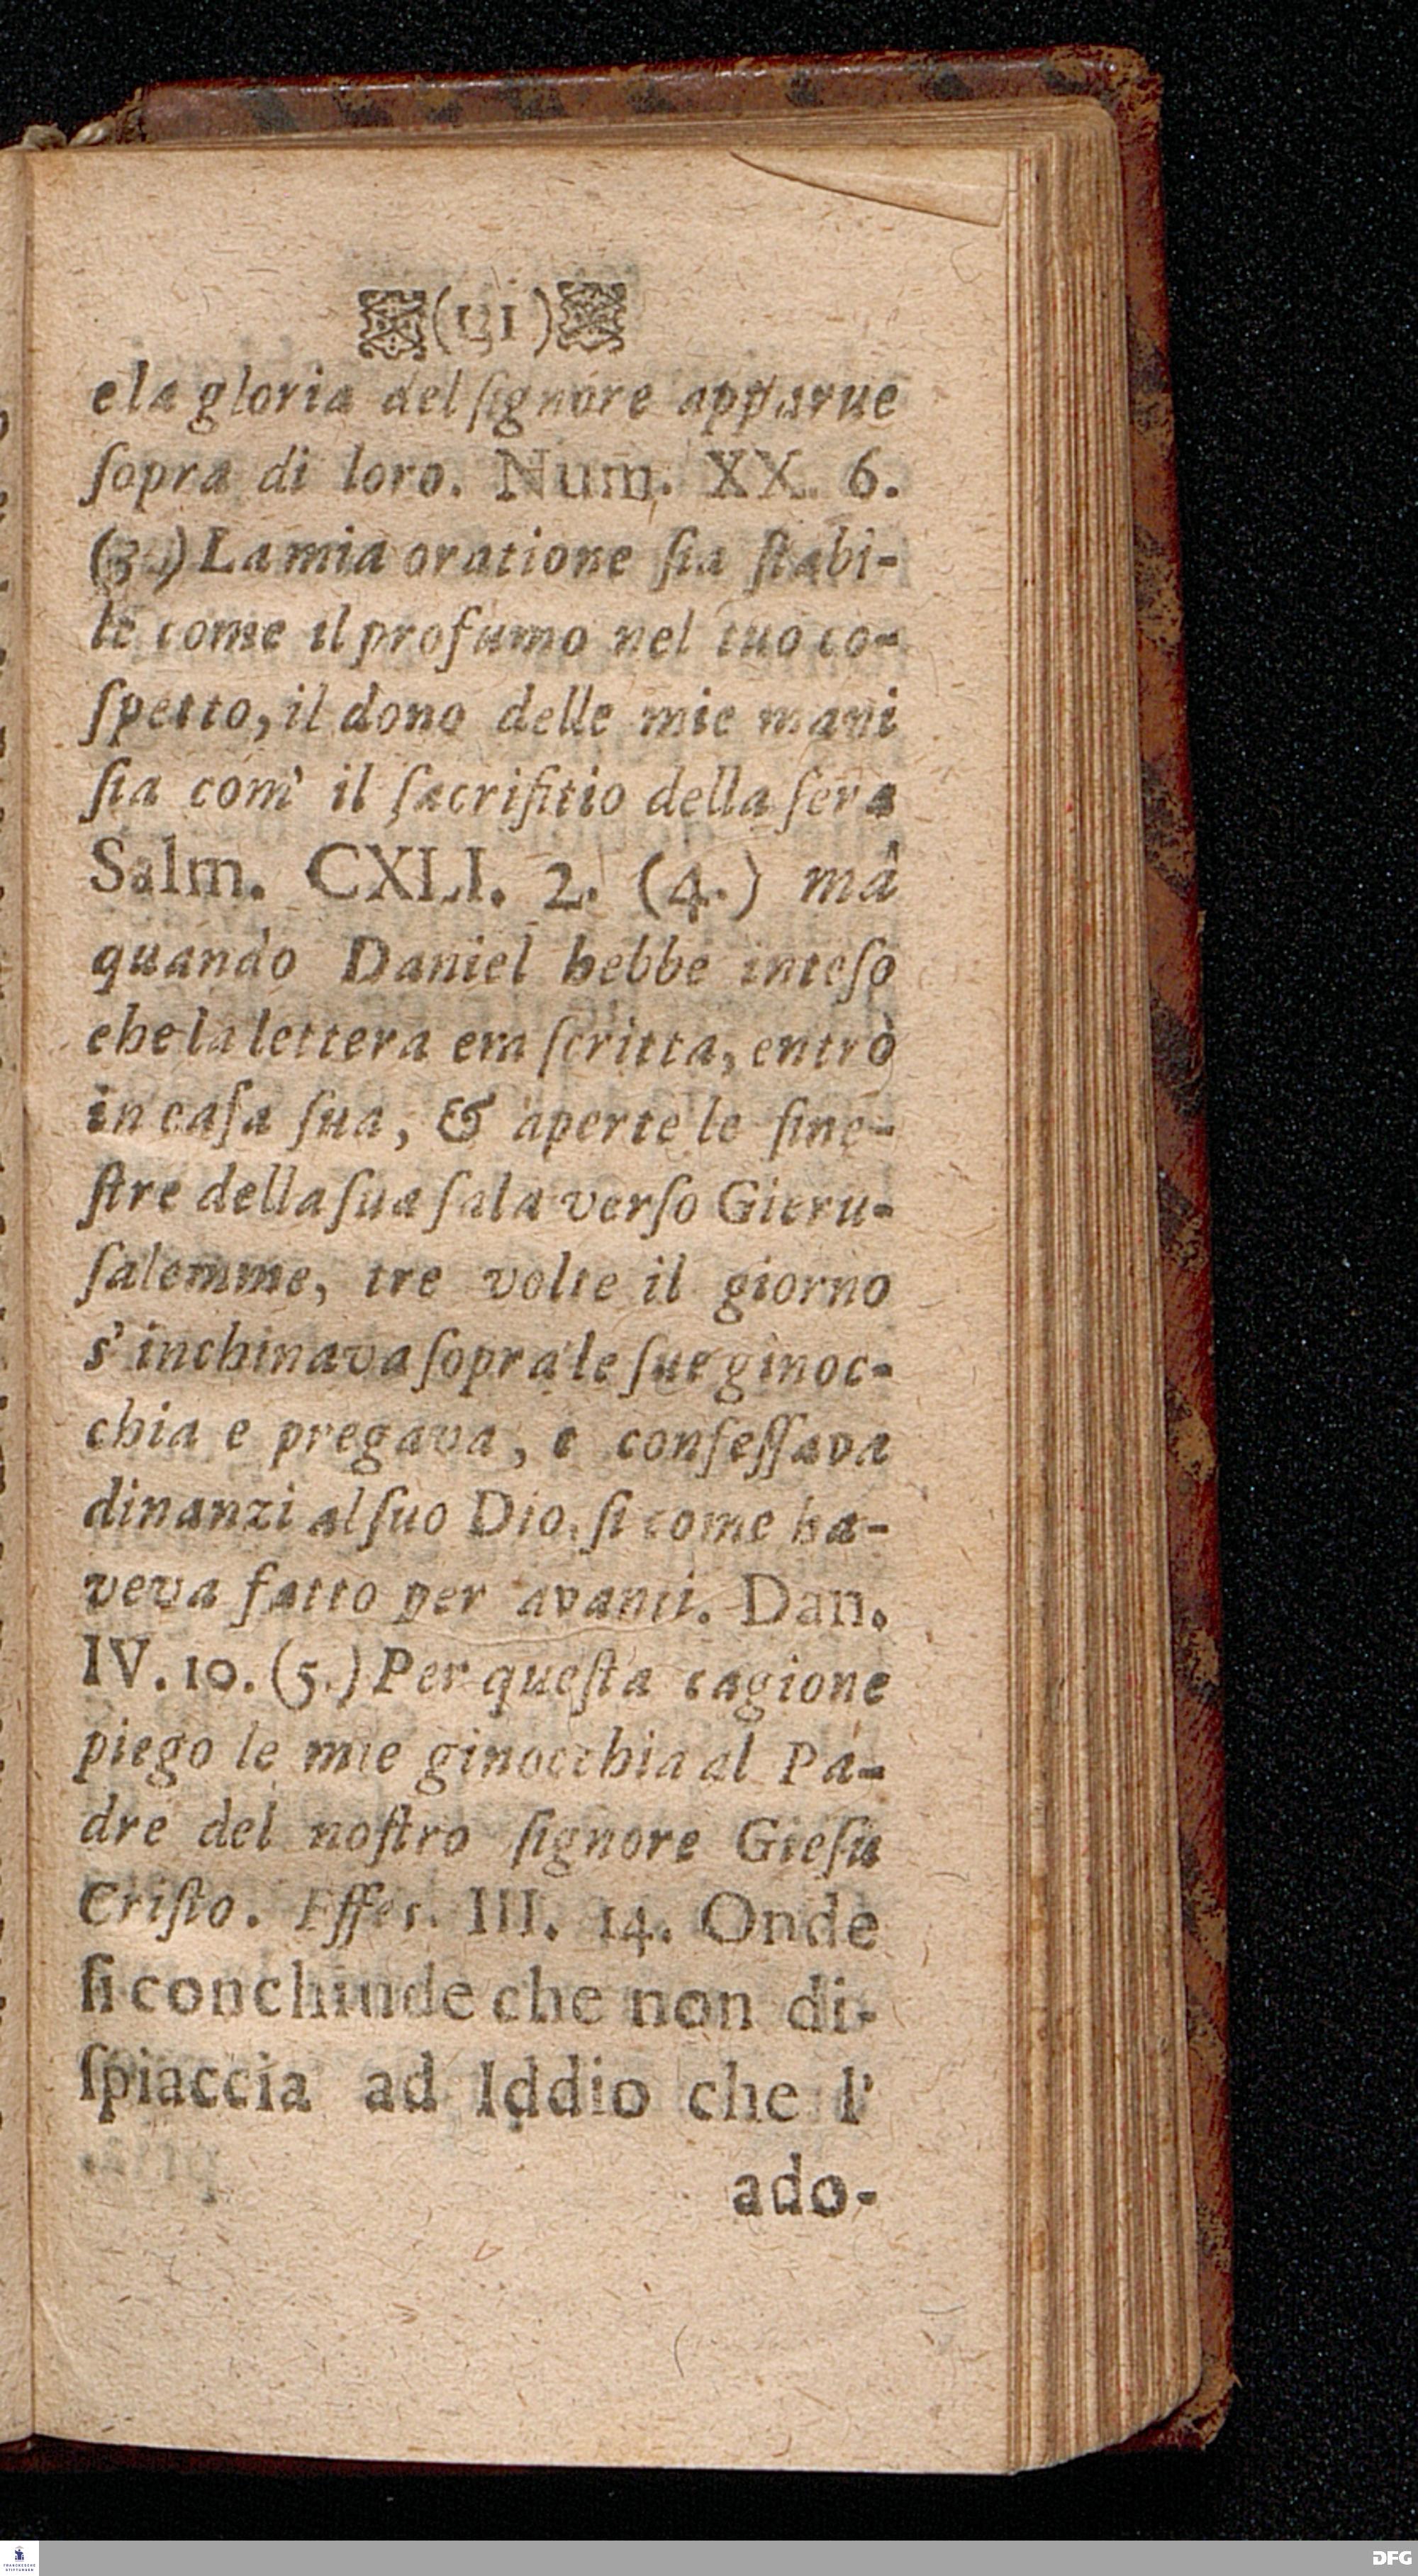 (151)
e la gloria del ſignore apparue
ſopra di loro. Num. XX. 6.
(3.) La mia oratione ſia ſtabi-
le come il profumo nel tuo co-
ſpetto, il dono delle mie mani
ſia com' il ſacrifitio della ſera
Salm. CXLI. 2. (4.) mà
quando Daniel hebbe inteſo
che la lettera era ſcritta, entrò
in caſa ſua, & aperte le fine-
ſtre della ſua ſala verſo Gieru-
ſalemme, tre volte il giorno
s' inchinava ſopra le ſue ginoc-
chia e pregava, e confeſſava
dinanzi al ſuo Dio, ſi come ha-
veva fatto per avanti. Dan.
IV. 10. (5.) Per queſta cagione
piego le mie ginocchia al Pa-
dre del noſtro ſignore Gieſù
Criſto. Effeſ. III. 14. Onde
ſi conchiude che non di-
ſpiaccia ad Iddio che l'
ado-
FRANCKESCHE
STIFTUNGEN
DFG